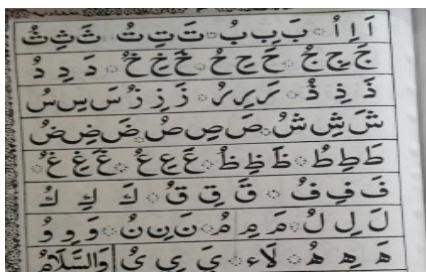 اَ اِ اُ بَ بِ بُ تَ تِ تُ ثَ ثِ ثُ
جَ جِ جُ حَ حِ حُ خَ خِ خُ دَ دِ دُ
ذَ ذِ ذُ رَ رِ رُ زَ زِ زُ سَ سِ سُ
شَ شِ شُ صَ صِ صُ ضَ ضِ ضُ
طَ طِ طُ ظَ ظِ ظُ عَ عِ عُ غَ غِ غُ
فَ فِ فُ قَ قِ قُ كَ كِ كُ
لَ لِ لُ مَ مِ مُ نَ نِ نُ وَ وِ وُ
هَ هِ هُ لَاء يَ يِ يُ وَالسَّلَامُ